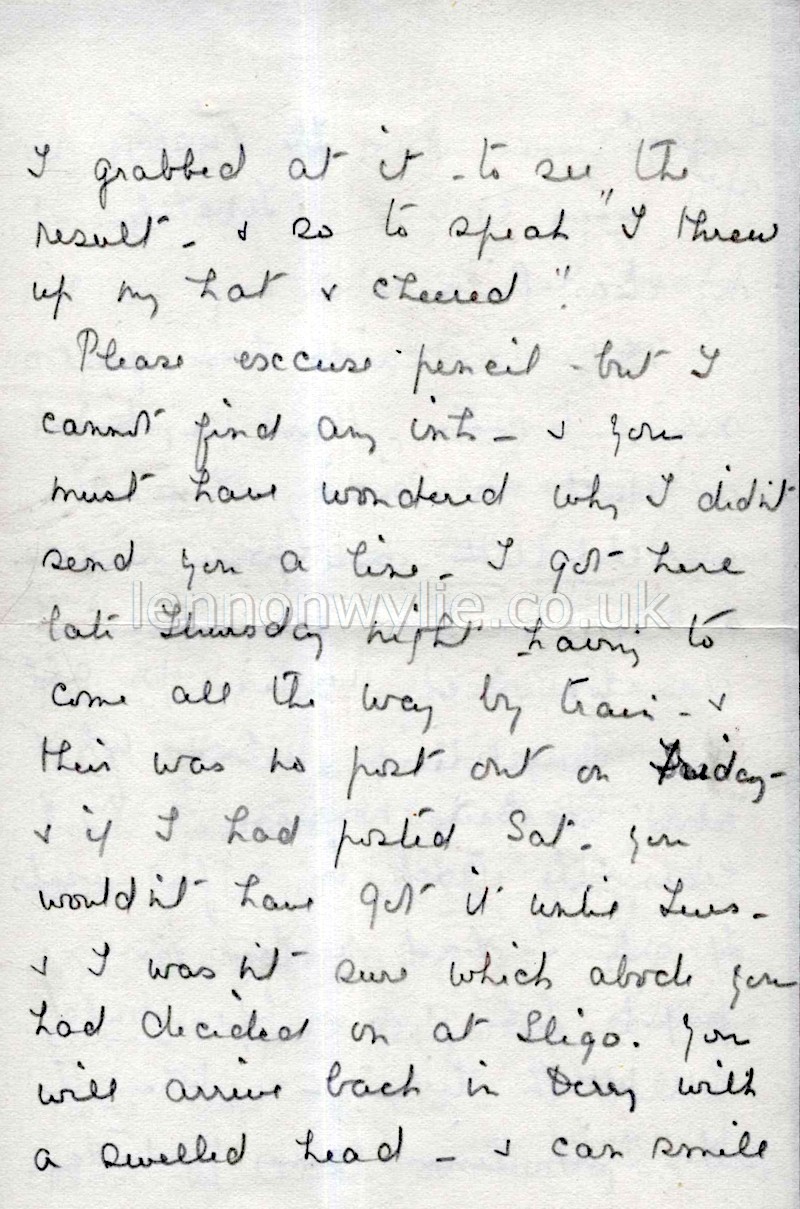 I grabbed at it - to see the
result - & so to speak "I threw
up my hat & cheered".
Please exccuse pencil - but I
cannot find any ink - & you
must have wondered why I didn't
send you a line - I got here
lennonwylie.co.uk
late Thursday night having to
come all the way by train - &
their was no post out on Friday -
& if I had posted Sat - you
wouldn't have got it until Tues -
& I wasn't sure which abode you
had decided on at Sligo. You
will arrive back in Derry with
a swelled head - & can smile